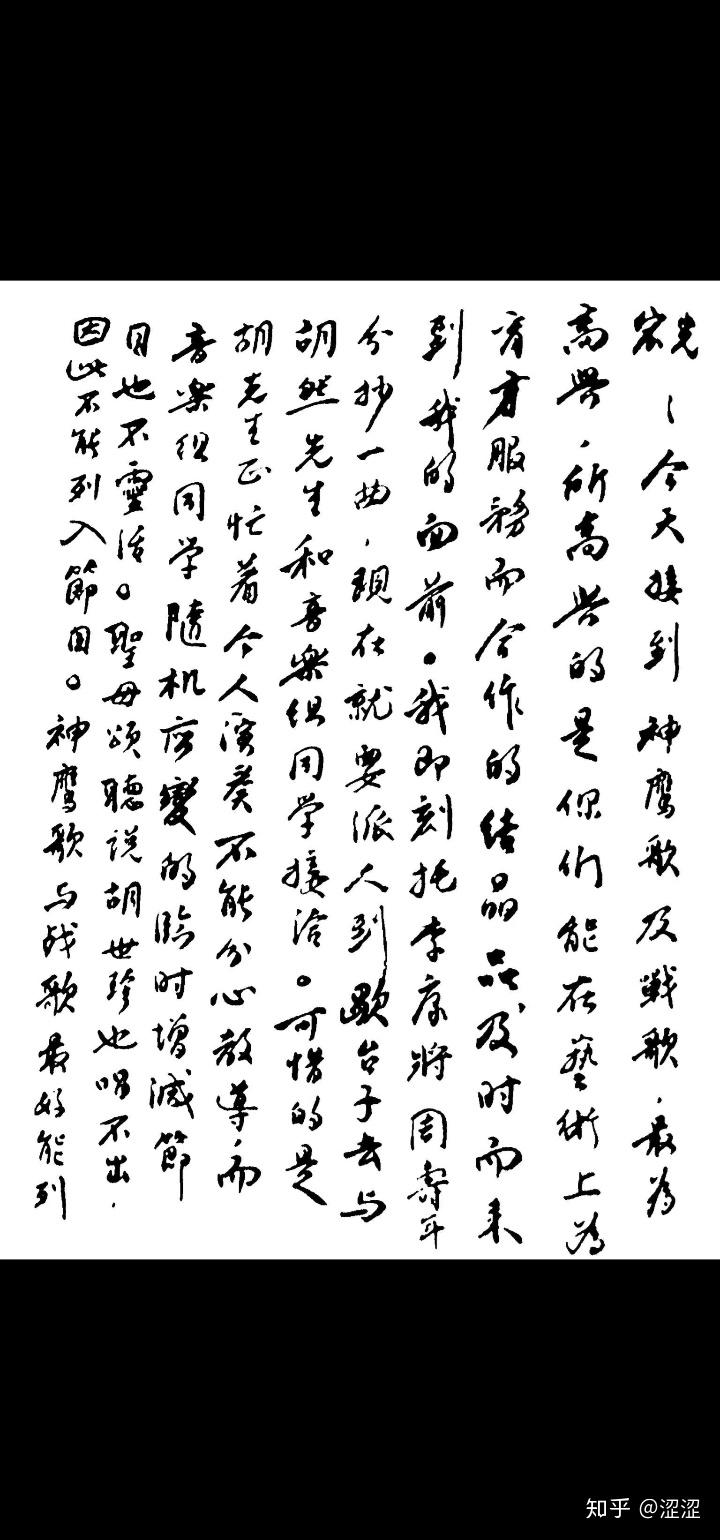 宏先，今天接到神鹰歌及战歌，最为
高兴，所高兴的是你们能在藝術上為
育才服務而合作的结晶品及时而来
到我的面前。我即刻托李广將周壽耳
分抄一曲，現在就要派人到歇台子去与
胡然先生和音樂组同学接洽。可惜的是
胡先生正忙着个人演奏不能分心教導，而
音樂组同学隨机应變的临时增减節
目也不靈活。聖母颂聽说胡世珍也唱不出，
因此不能列入節目。神鹰歌与战歌最好能列
知乎 @涩涩